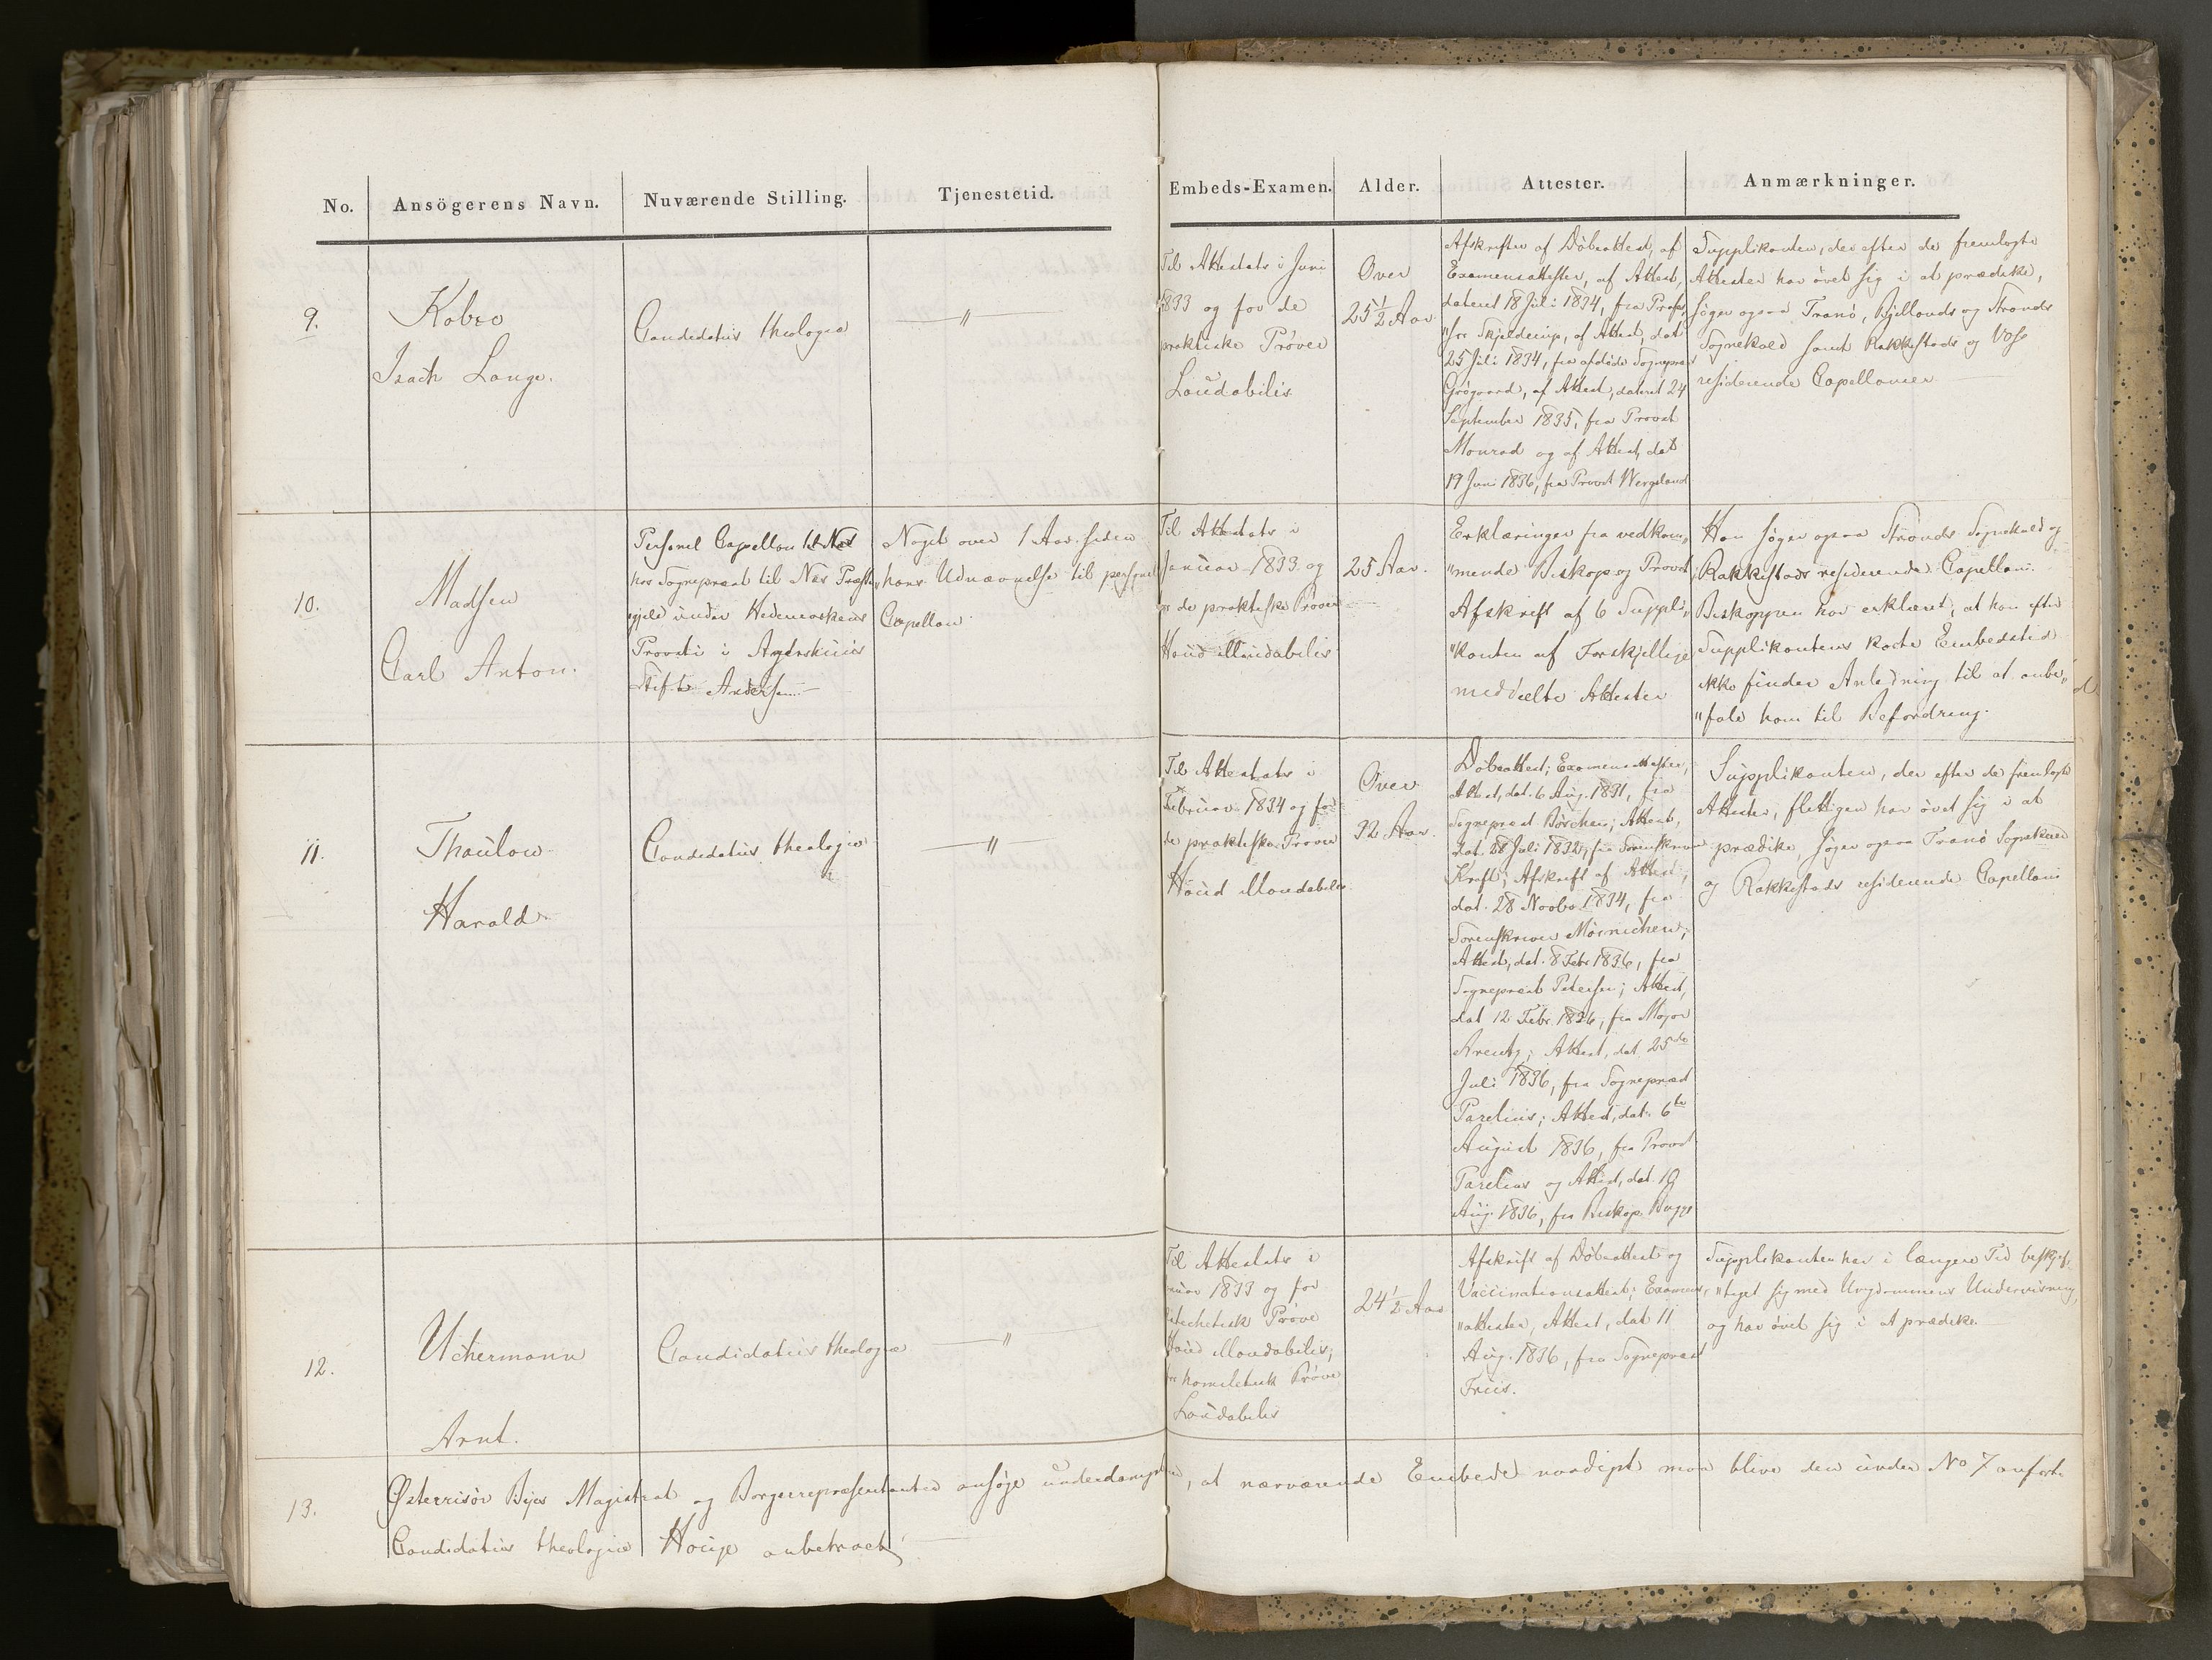 No. Ansögerens Navn. Nuværende Stilling. Tjenestetid. Embeds-Examen. Alder. Attester. Anmærkninger.
9.
Kobro
Isach Lange.
Candidatus theologiæ
— " —
Til Attestats i Juni
1833 og for de
praktiske Prøver
Laudabilis
Over
25 1/2 Aar
Afskrifter af Döbeattest, af
Examensattester, af Attest,
dateret 18 Juli 1834, fra Profes,
"sor Skjelderup, af Attest, dat
25 Juli 1834, fra afdøde Sognepræst
Grøgaard, af Attest, dateret 24
September 1835, fra Provst
Monrad og af Attest, dat
19 Juni 1836, fra Provst Wergeland
Supplikanten, der efter de fremlagte
Attester har øvet sig i at prædike,
søger ogsaa Tranø, Bjellands og Strands
Sognekald samt Rakkestads og Voss
residerende Capellanier
10.
Madsen
Carl Anton.
Personel Capellan til Næs
hos Sognepræst til Næs Præste,
"gjeld under Hedemarkens
Provsti i Agershuus
Stift Andersen
Noget over 1 Aar siden
hans Udnævnelse til personel
Capellan
Til Attestats i
Januar 1833 og
for de praktiske Prøver
Haud illaudabilis
25 Aar.
Erklæringer fra vedkom,
"mende Biskop og Provst
Afskrift af 6 Suppli,
"kanten af Forskjellige
meddeelte Attester
Han søger ogsaa Strands Sognekald og
Rakkestads residerende Capellani.
Biskoppen har erklæret, at han efter
Supplikantens korte Embedstid
ikke finder Anledning til at anbe,
"fale ham til Befordring.
11.
Thaulow
Harald
Candidatus theologiæ
— " —
Til Attestats i
Februar 1834 og for
de praktiske Prøver
Haud illaudabilis
Over
32 Aar.
Döbeattest; Examensattester,
Attest, dat. 6 Aug. 1831, fra
Sognepræst Børchen; Attest,
dat. 28 Juli 1832, fra Sorenskriver
Kraft; Afskrift af Attest,
dat. 28 Novbr 1834, fra
Sorenskriver Münichen;
Attest, dat. 8 Febr 1836, fra
Sognepræst Petersen; Attest,
dat 12 Febr. 1836, fra Major
Arentz; Attest, dat. 25de
Juli 1836, fra Sognepræst
Parelius; Attest, dat. 6te
August 1836, fra Provst
Parelius og Attest, dat. 19
Aug. 1836, fra Biskop Bugge
Supplikanten, der efter de fremlagte
Attester, flittigen har øvet sig i at
prædike, søger ogsaa Tranø Sognekald
og Rakkestads residerende Capellani
12.
Uchermann
Arnt.
Candidatus theologiæ
— " —
Til Attestats i
1833 og for
catechetisk Prøve
Haud illaudabilis;
for homiletisk Prøve
Laudabilis
24 1/2 Aar
Afskrift af Döbeattest og
Vaccinationsattest; Examens,
"attester, Attest, dat 11
Aug. 1836, fra Sognepræst
Friis.
Supplikanten har i længere Tid beskjef,
"tiget sig med Ungdommens Underviisning,
og har øvet sig i at prædike.
13.
Østerrisør Byes Magistrat og Borgerrepræsentanter ansøge underdanigst, at nærværende Embede naadigst maa blive den under No 7 anførte
Candidatus theologiæ Hauge anbetroet